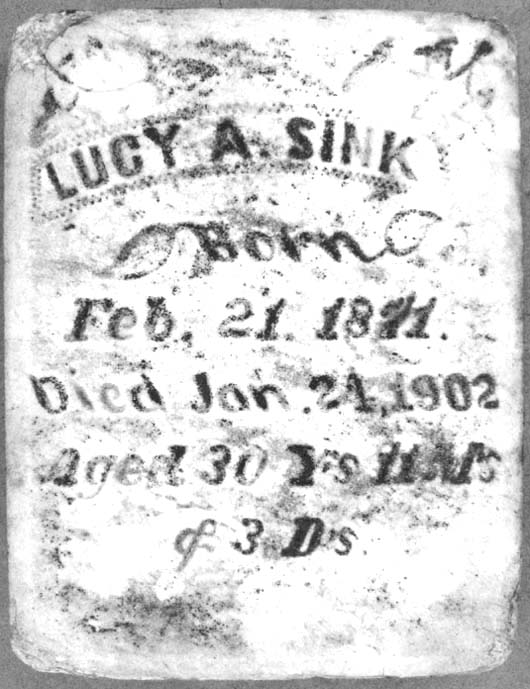 LUCY A. SINK
Born
Feb. 21. 1871.
Died Jan. 24, 1902
Aged 30 Ys 11 Ms
& 3 Ds.